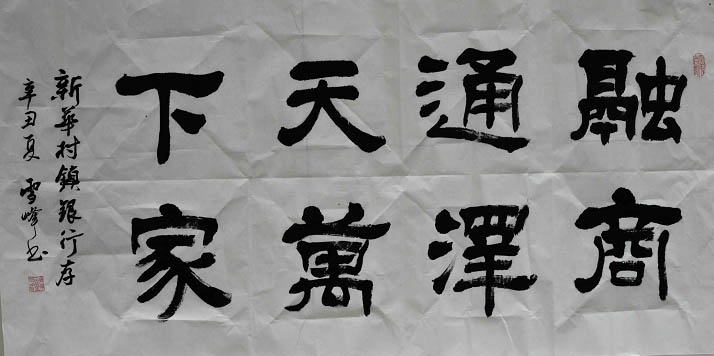 融商
通澤
天萬
下家
新華村鎮銀行存
辛丑夏 雪峰书